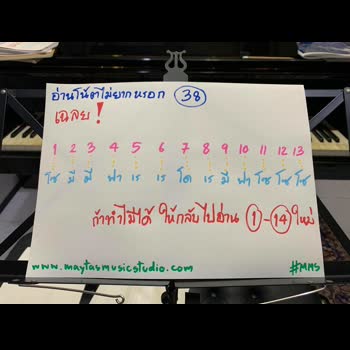 อ่านโน้ตไม่ยากหรอก 38
เฉลย!
1 2 3 4 5 6 7 8 9 10 11 12 13
โซ มี มี ฟา เร เร โด เร มี ฟา โซ โซ โซ
ถ้าทำไม่ได้ ให้กลับไปอ่าน 1 - 14 ใหม่
www.maytasmusicstudio.com
#MMS